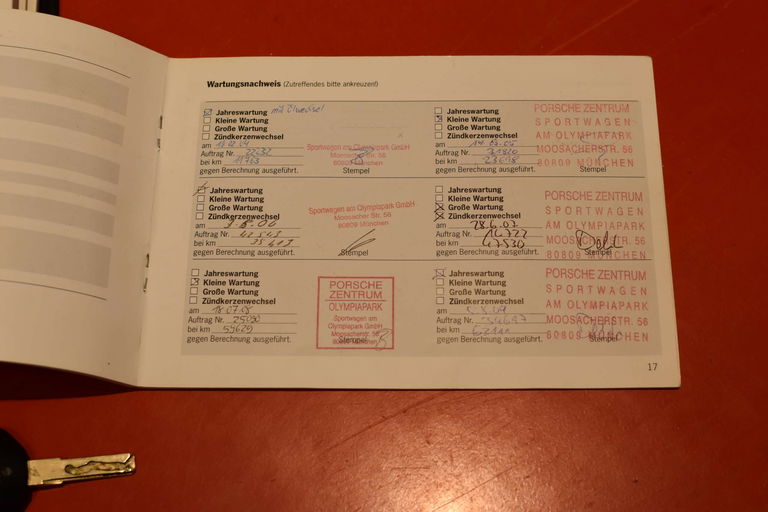 Wartungsnachweis (Zutreffendes bitte ankreuzen!)
Jahreswartung mit Ölwechsel
Kleine Wartung
Große Wartung
Zündkerzenwechsel
am 18.02.04
Auftrag Nr. 2232
bei km
gegen Berechnung ausgeführt.
Sportwagen am Olympiapark GmbH
Moosacher Str. 58
80809 München
Stempel
Jahreswartung
Kleine Wartung
Große Wartung
Zündkerzenwechsel
am
Auftrag Nr.
bei km 23698
gegen Berechnung ausgeführt.
PORSCHE ZENTRUM
SPORTWAGEN
AM OLYMPIAPARK
MOOSACHERSTR. 56
80809 MÜNCHEN
Stempel
Jahreswartung
Kleine Wartung
Große Wartung
Zündkerzenwechsel
am
Auftrag Nr.
bei km 35403
gegen Berechnung ausgeführt.
Sportwagen am Olympiapark GmbH
Moosacher Str. 56
80809 München
Stempel
Jahreswartung
Kleine Wartung
Große Wartung
Zündkerzenwechsel
am 28.6.07
Auftrag Nr. 16722
bei km 47530
gegen Berechnung ausgeführt.
PORSCHE ZENTRUM
SPORTWAGEN
AM OLYMPIAPARK
MOOSACHERSTR. 56
80809 MÜNCHEN
Stempel
Jahreswartung
Kleine Wartung
Große Wartung
Zündkerzenwechsel
am 18.07.08
Auftrag Nr. 25090
bei km 59629
gegen Berechnung ausgeführt.
PORSCHE
ZENTRUM
OLYMPIAPARK
Sportwagen am
Olympiapark GmbH
Moosacher Str. 56
80809 München
Stempel
Jahreswartung
Kleine Wartung
Große Wartung
Zündkerzenwechsel
am
Auftrag Nr.
bei km
gegen Berechnung ausgeführt.
PORSCHE ZENTRUM
SPORTWAGEN
AM OLYMPIAPARK
MOOSACHERSTR. 56
80809 MÜNCHEN
Stempel
17